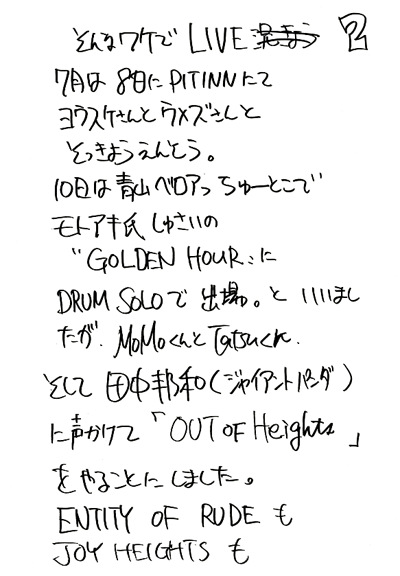 そんなワケで LIVE 2
7月は 8日に PITINNにて
ヨウスケさんと ウメズさんと
とっきょうえんとう。
10日は 青山 ベロアっ ちゅーとこで
モトアキ氏 しゅさいの
"GOLDEN HOUR"に
DRUM SOLOで 出場。と いいまし
たが. MoMoくんと Tatsuくん.
そして 田中邦和(ジャイアントパンダ)
に声かけて「OUT OF Heights」
をやることにしました。
ENTITY OF RUDE も
JOY HEIGHTS も